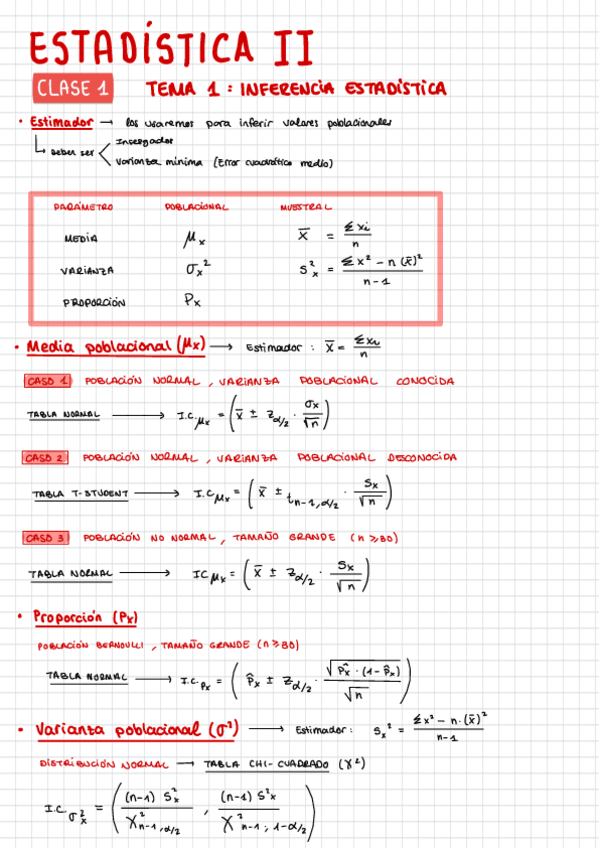 ESTADÍSTICA II
CLASE 1 TEMA 1: INFERENCIA ESTADÍSTICA
• Estimador → los usaremos para inferir valores poblacionales
Deben ser < Insesgador
Varianza mínima (Error cuadrático medio)
PARÁMETRO POBLACIONAL MUESTRAL
MEDIA μₓ x̄ = Σxi / n
VARIANZA σₓ² S²ₓ = Σx² - n(x̄)² / n-1
PROPORCIÓN Pₓ
• Media poblacional (μₓ) → Estimador: x̄ = Σxi / n
CASO 1 POBLACIÓN NORMAL, VARIANZA POBLACIONAL CONOCIDA
TABLA NORMAL → I.C.μₓ = (x̄ ± z α/2 · σₓ / √n)
CASO 2 POBLACIÓN NORMAL, VARIANZA POBLACIONAL DESCONOCIDA
TABLA T-STUDENT → I.C μₓ = (x̄ ± t n-1, α/2 · Sₓ / √n)
CASO 3 POBLACIÓN NO NORMAL, TAMAÑO GRANDE (n ≥30)
TABLA NORMAL → IC μₓ = (x̄ ± z α/2 · Sₓ / √n)
• Proporción (Pₓ)
POBLACIÓN BERNOULLI, TAMAÑO GRANDE (n ≥30)
TABLA NORMAL → I.C. pₓ = (p̂ₓ ± z α/2 · √p̂ₓ · (1-p̂ₓ) / √n)
• Varianza poblacional (σ²) → Estimador: Sₓ² = Σx² - n·(x̄)² / n-1
DISTRIBUCIÓN NORMAL → TABLA CHI-CUADRADO (χ²)
I.C σ²ₓ = ((n-1) S²ₓ / χ² n-1, α/2 , (n-1) S²x / χ² n-1; 1-α/2)